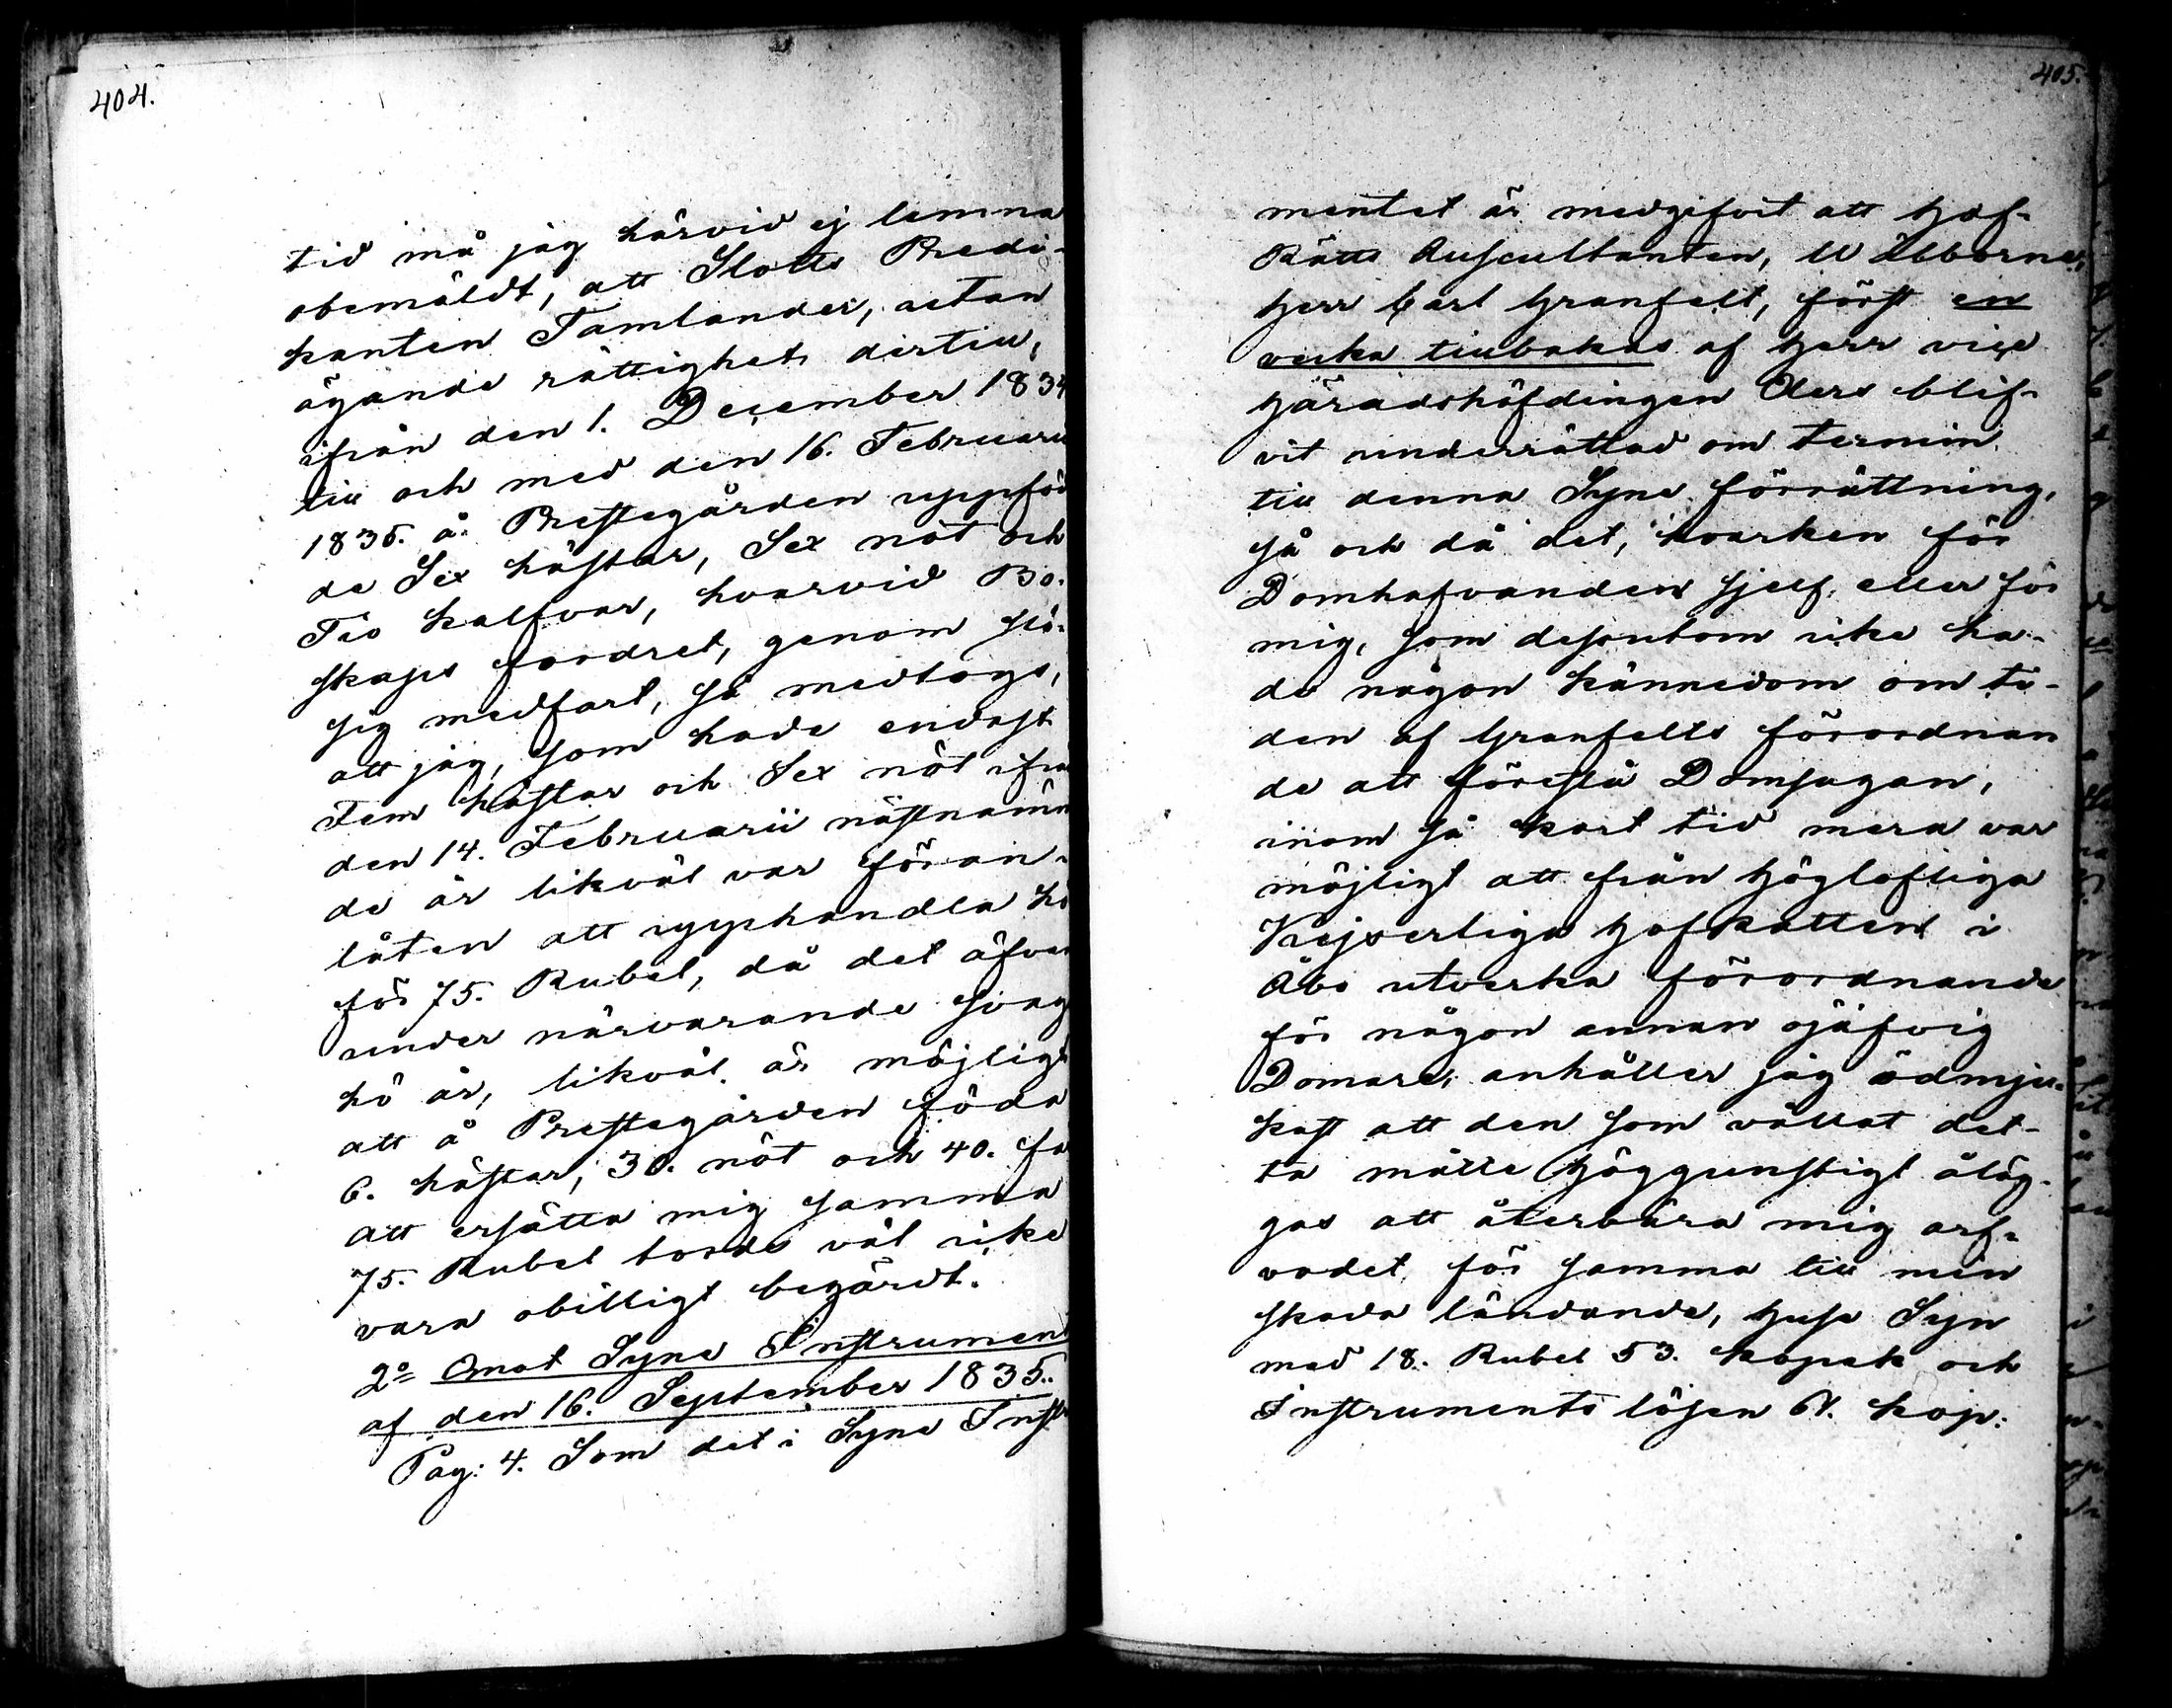 404.
tid må jag härvid ej lemna
obemäldt, att Slotts Predi-
kanten Tamlander, utan
ägande rättighet dertill,
ifrån den 1. December 1834
till och med den 16. Februarii
1835. å Prestegården uppföd
de Sex hästar, Sex nöt och
Tio kalfvar, hvarvid Bo-
skaps foodret, genom slö-
sig medfart, så medtogs,
att jag, som hade endast
Fem hästar och Sex nöt ifrå
den 14. Februarii nästnämn
de år likväl var föran-
låten att upphandla hö
för 75. Rubel, då det äfven
under närvarande svag
hö år, likväl är möjligt
att å Prestegården föda
6. hästar, 30. nöt och 40. få
att ersätta mig samma
75. Rubel torde väl icke
vara obilligt begärdt.
2º Emot Syne Instrument
af den 16. September 1835.
Pag: 4. Som det i Syne Instr
405.
mentet är medgifvit att Hof-
Rätts Auscultanten, Wälborne
Herr Carl Granfelt, först en
vecka tillbakas af Herr vice
Häradshöfdingen Elers blif-
vit underrättad om termin
till denna Syne förrättning,
så och då det, hvarken för
Domhafvanden sjelf, eller för
mig, som dessutom icke ha-
de någon kännedom om ti-
den af Granfelts förordnan
de att förestå Domsagan,
inom så kort tid mera var
möjligt att från Höglofliga
Kejserliga HofRätten i
Åbo utverka förordnande
för någon annan ojäfvig
Domare, anhåller jag ödmju-
kast att den som vållat det-
ta måtte Höggunstigt åläg-
gas att återbära mig arf-
vodet för samma till min
skada ländande, Huse Syn
med 18. Rubel 53. kopek och
Instruments lösen 61. kop: